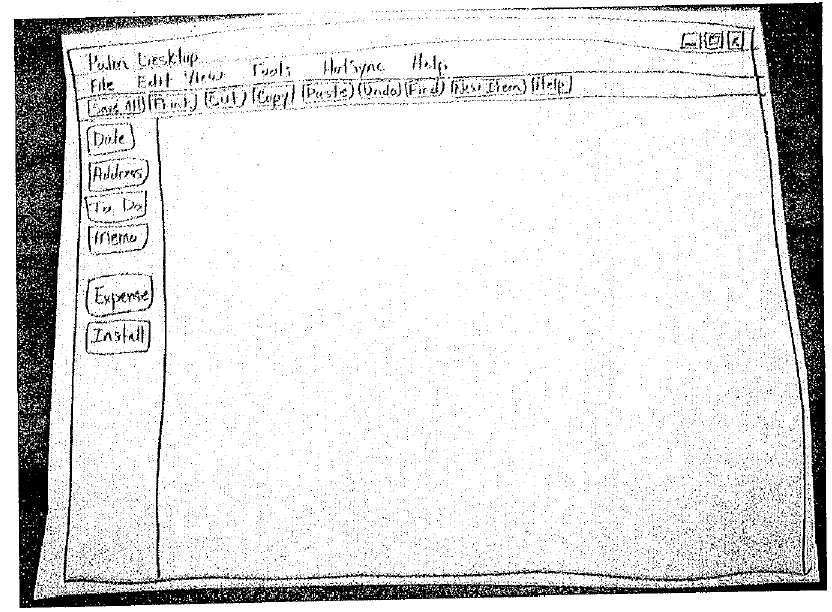 Palm Desktop
File Edit View Tools HotSync Help
Save All Print Cut Copy Paste Undo Find New Item Help
Date
Address
To Do
Memo
Expense
Install